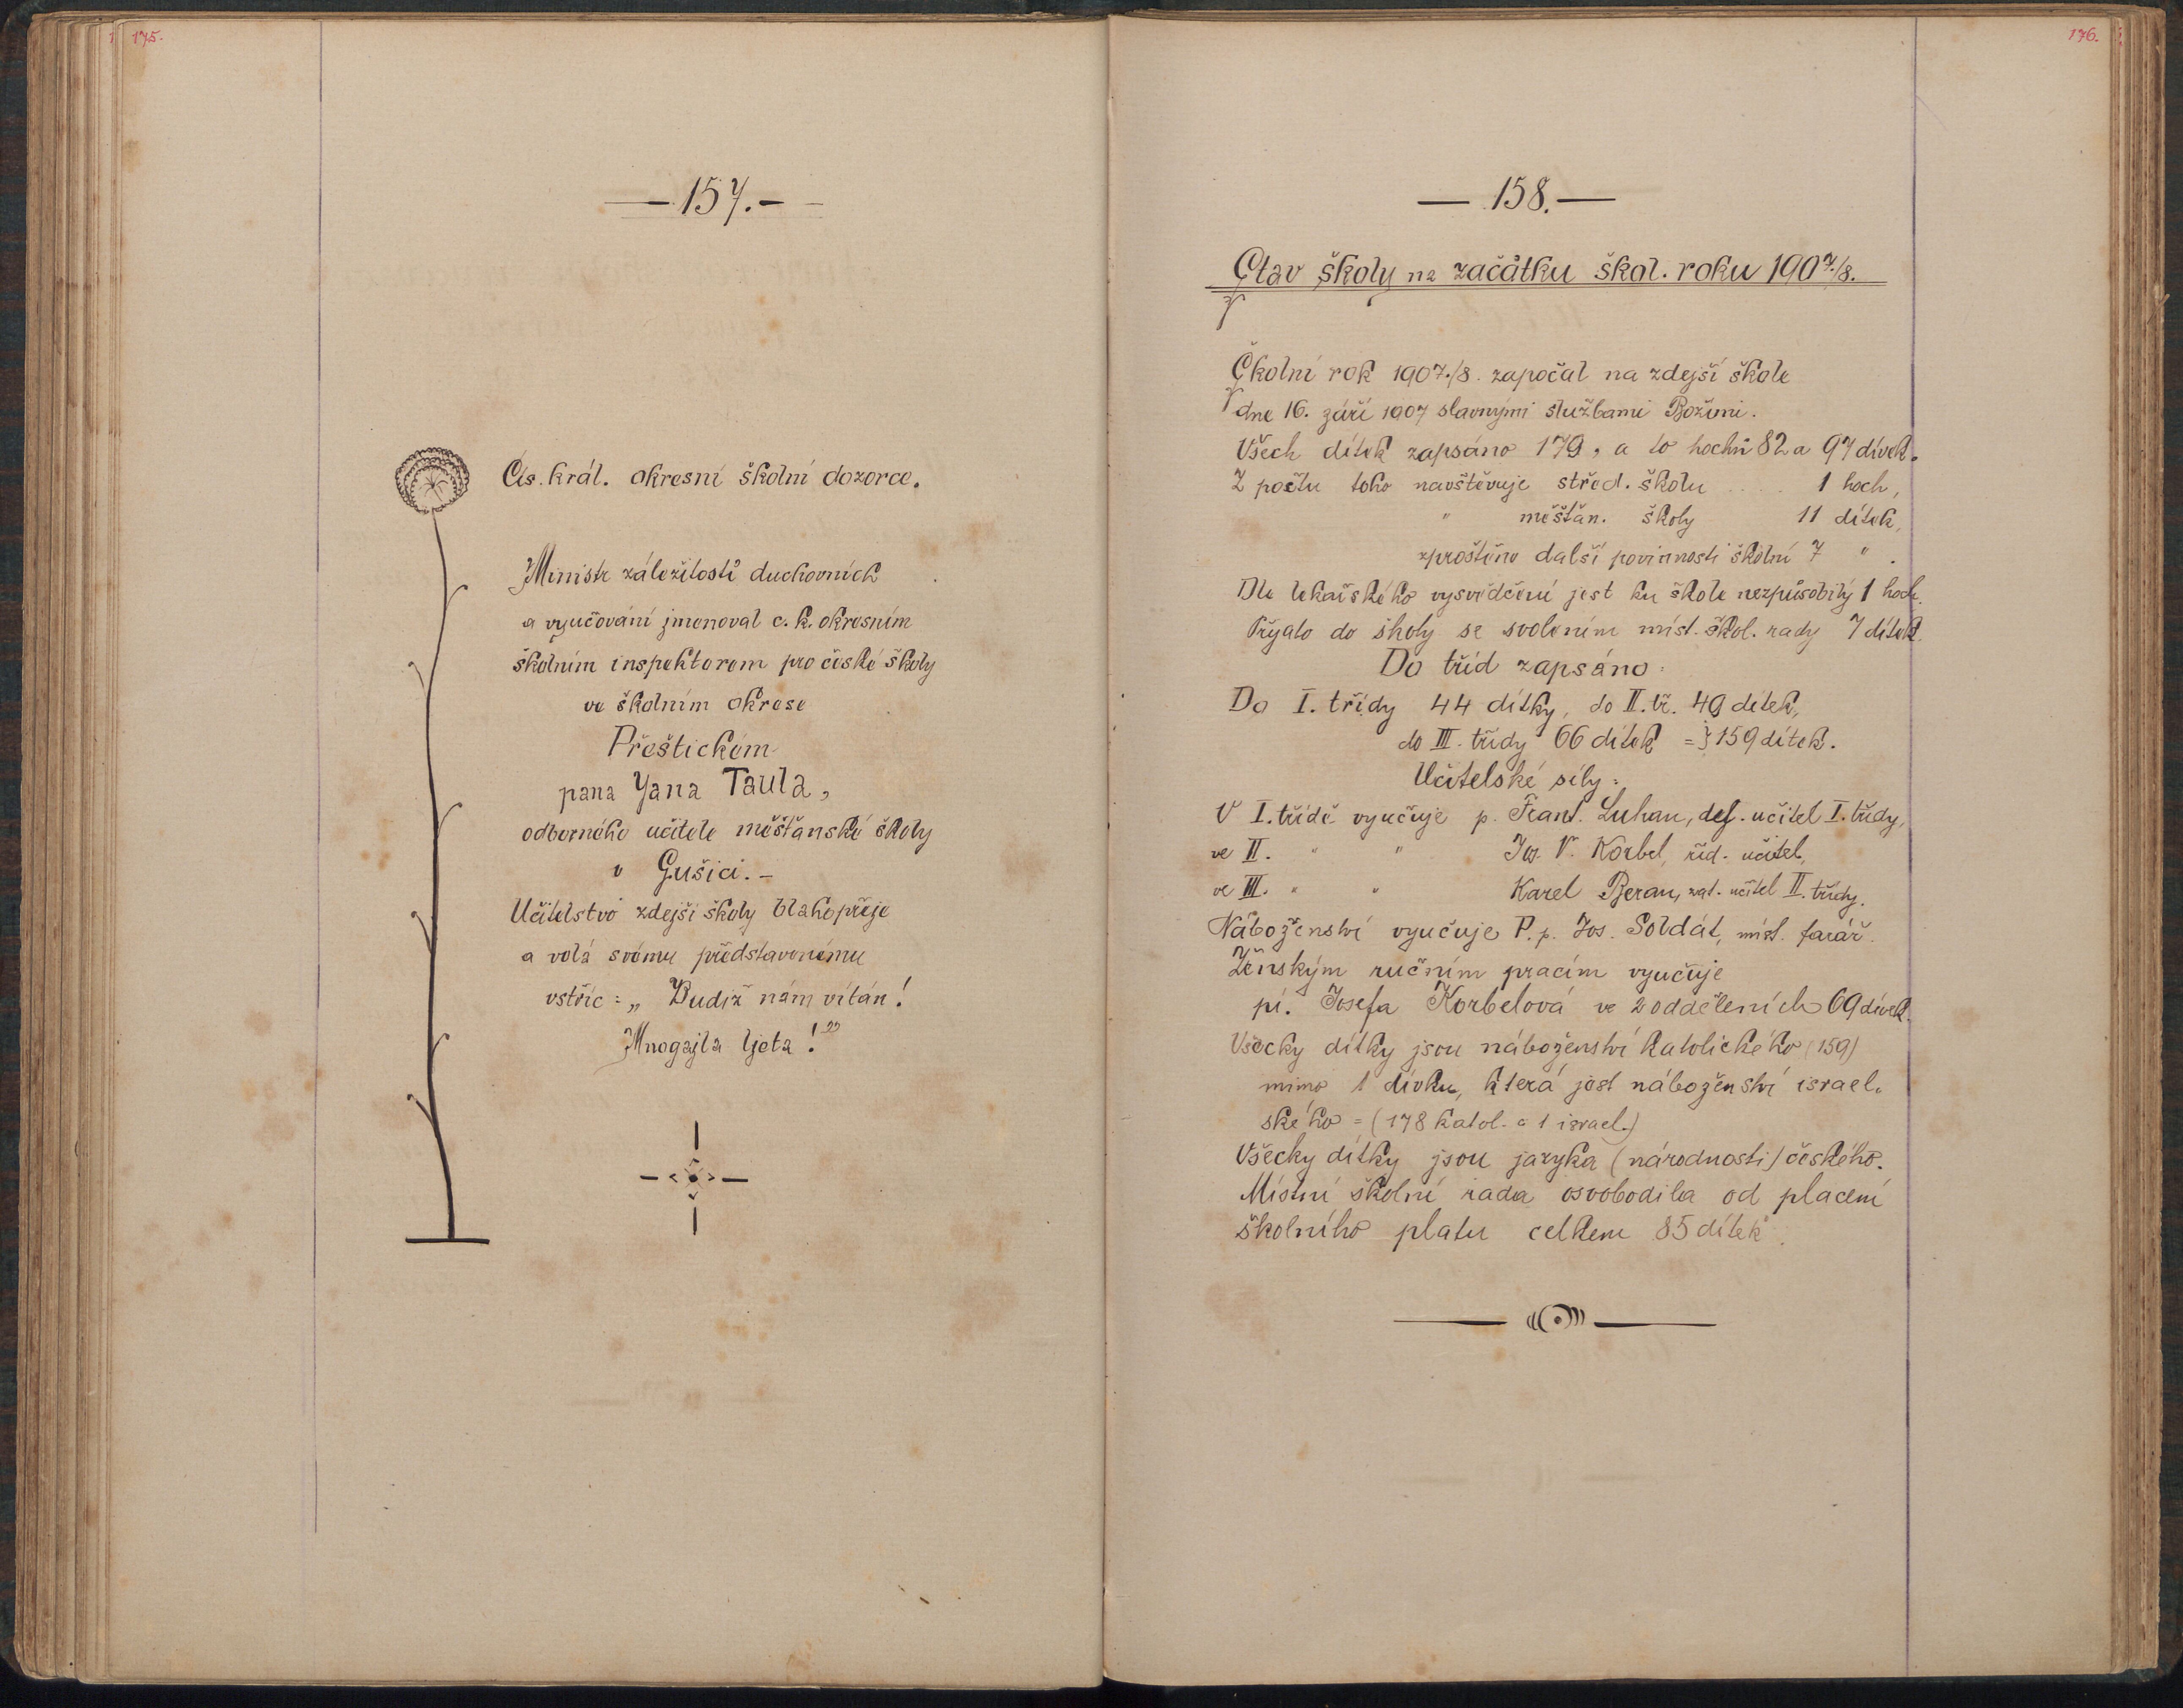 175.
— 157. —
Cís. král. okresní školní dozorce.
Ministr záležitostí duchovních
a vyučování jmenoval c. k. okresním
školním inspektorem pro české školy
ve školním okrese
Přeštickém
pana Jana Taula,
odborného učitele měšťanské školy
v Sušici. –
Učitelstvo zdejší školy blahopřeje
a volá svému představenému
vstříc: „Budiž nám vítán!
Mnogaja ljeta!"
176.
— 158. —
Stav školy na začátku škol. roku 1907./8.
Školní rok 1907./8. započal na zdejší škole
dne 16. září 1907 slavnými službami Božími.
Všech dítek zapsáno 179, a to hochů 82 a 97 dívek.
Z počtu toho navštěvuje střed. školu . . . . 1 hoch,
" měšťan. školy 11 dítek,
zproštěno další povinnosti školní 7 " .
Dle lékařského vysvědčení jest ku škole nezpůsobilý 1 hoch.
Přijato do školy se svolením míst. škol. rady 7 dítek.
Do tříd zapsáno:
Do I. třídy 44 dítky, do II. tř. 49 dítek,
do III. třídy 66 dítek = } 159 dítek.
Učitelské síly:
V I. třídě vyučuje p. Frant. Luhan, def. učitel I. třídy,
ve II. " " Jos. V. Korbel, říd. učitel,
ve III. " " Karel Beran, zat. učitel II. třídy.
Náboženství vyučuje P. p. Jos. Soldát, míst. farář.
Ženským ručním pracím vyučuje
pí. Josefa Korbelová ve 2 odděleních 69 dívek.
Všecky dítky jsou náboženství katolického (159)
mimo 1 dívku, která jest náboženství israel-
ského = (178 katol. a 1 israel.)
Všecky dítky jsou jazyka (národnosti) českého.
Místní školní rada osvobodila od placení
školního platu celkem 85 dítek.